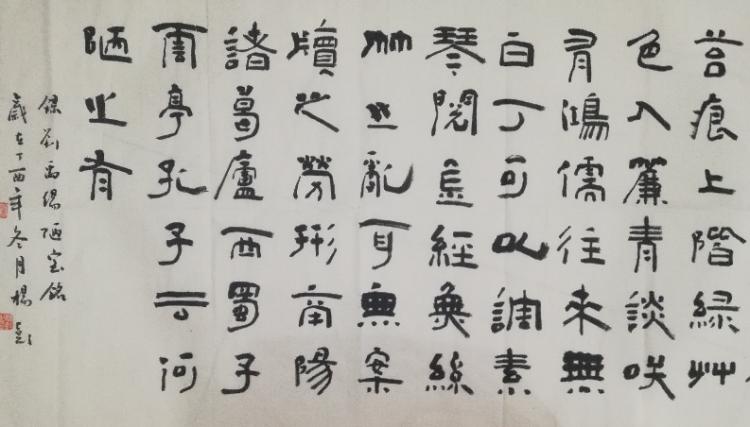 苔痕上階綠艸
色入簾青談咲
有鴻儒往来無
白丁可以調素
琴閱金經無絲
竹之亂耳無案
牘之勞形南陽
諸葛廬西蜀子
雲亭孔子云何
陋之有
錄劉禹錫陋室銘
歲在丁酉年冬月楊